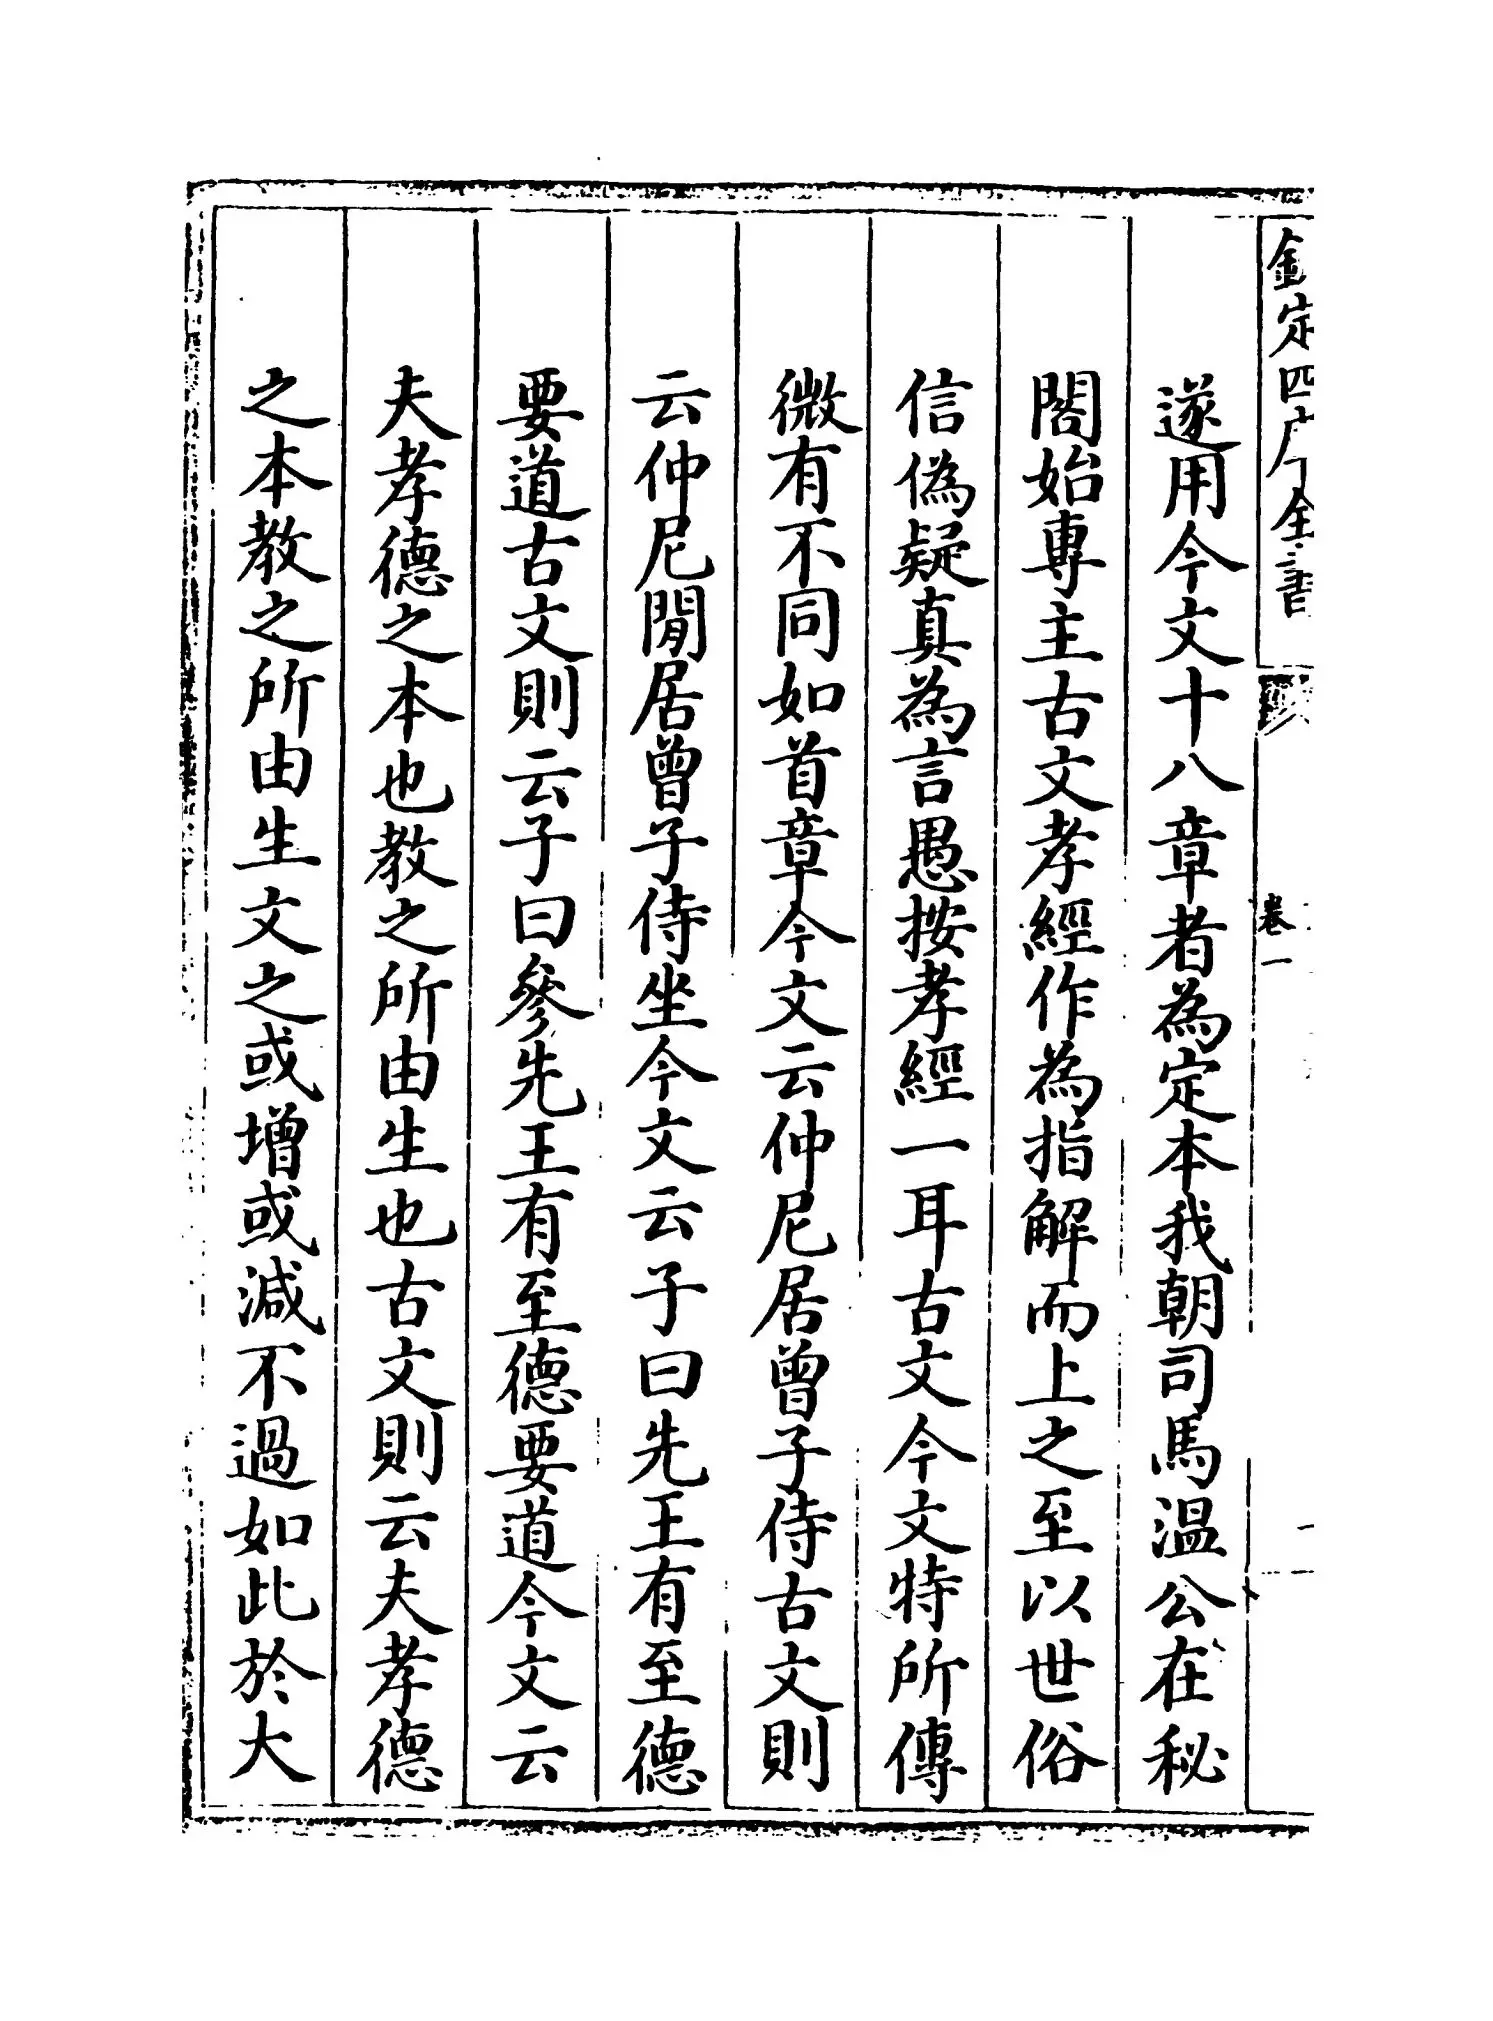 欽定四庫全書
卷一
遂用今文十八章者為定本我朝司馬温公在秘
閣始專主古文孝經作為指解而上之至以世俗
信偽疑真為言愚按孝經一耳古文今文特所傳
微有不同如首章今文云仲尼居曾子侍古文則
云仲尼閒居曾子侍坐今文云子曰先王有至德
要道古文則云子曰參先王有至德要道今文云
夫孝德之本也教之所由生也古文則云夫孝德
之本教之所由生文之或增或減不過如此於大